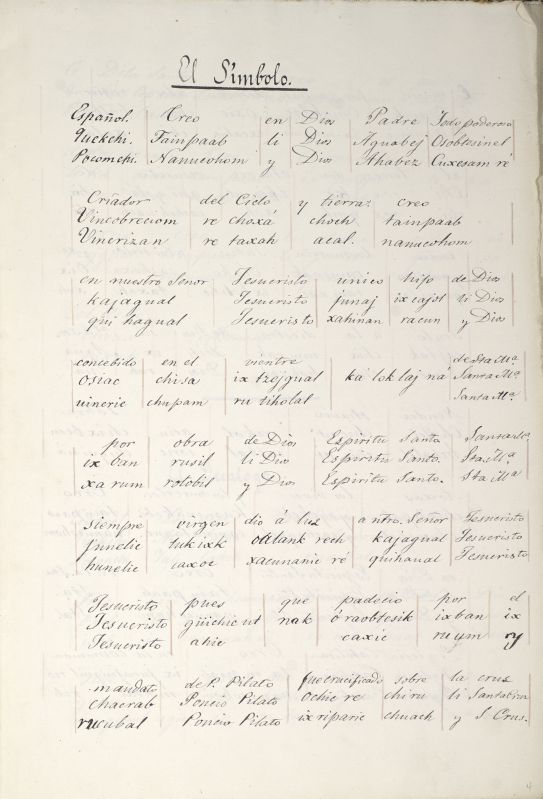 El Símbolo.
Español. Creo en Dios Padre Todo poderoso
Quekchi. Tainpaab li Dios Aguabej Osobtesinel
Pocomchi. Nanucohom y Dios Ahabez Cuxesam ré
Criador del Cielo y tierra: creo
Vincobreciom re choxá choch tainpaab
Vincrizan re taxah acal. nanucohom
en nuestro Señor Jesucristo unico hijo de Dios
kajagual Jesucristo junaj ix cajol li Dios
qui hagual Jesucristo xahinan racun y Dios
concebido en el vientre de Sta Mª
osiac chisa ix tzejgual ka lok laj ná Santa Mª
uineric chupam ru tiholal Santa Mª.
por obra de Dios Espiritu Santo
ix ban rusil li Dios Espiritu Santo. Sta Mª
xa rum rolobil y Dios Espiritu Santo. Sta Mª
siempre virgen dio á luz a ntro. Señor Jesucristo
junelic tuk ixk rech kajagual Jesucristo
hunelic caxoc xacunanic ré quihaual Jesucristo
Jesucristo pues que padecio por el
Jesucristo güichic ut nak óraobtesik ixban ix
Jesucristo ahic caxic ruym ry
mandato de P. Pilato fue crucificado sobre la cruz
chacrab Poncio Pilato ochic re chi ru li
rucubal Poncio Pilato ix riparic chuach y S Crus.